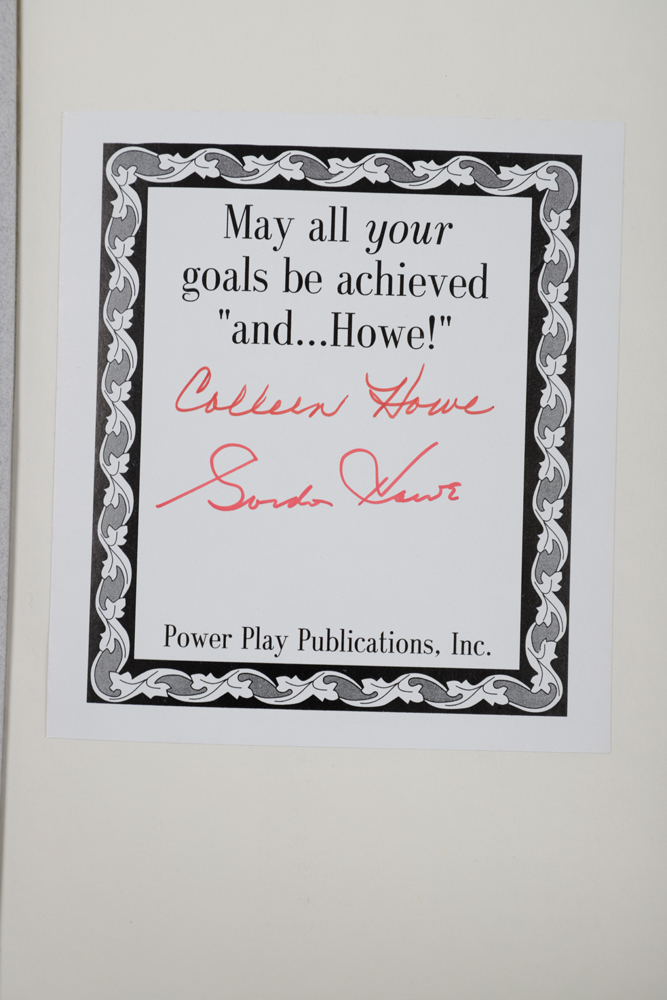 May all your
goals be achieved
"and...Howe!"
Colleen Howe
Gordie Howe
Power Play Publications, Inc.